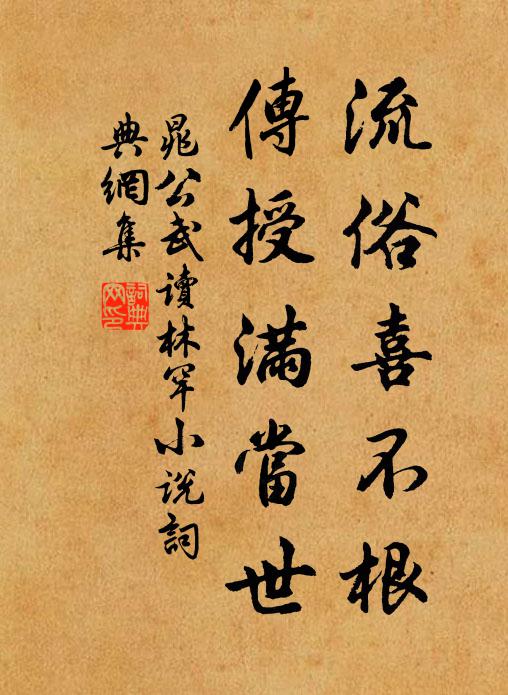 流俗喜不根
傳授滿當世
晁公武讀林罕小说詞
典網集
詞典網印